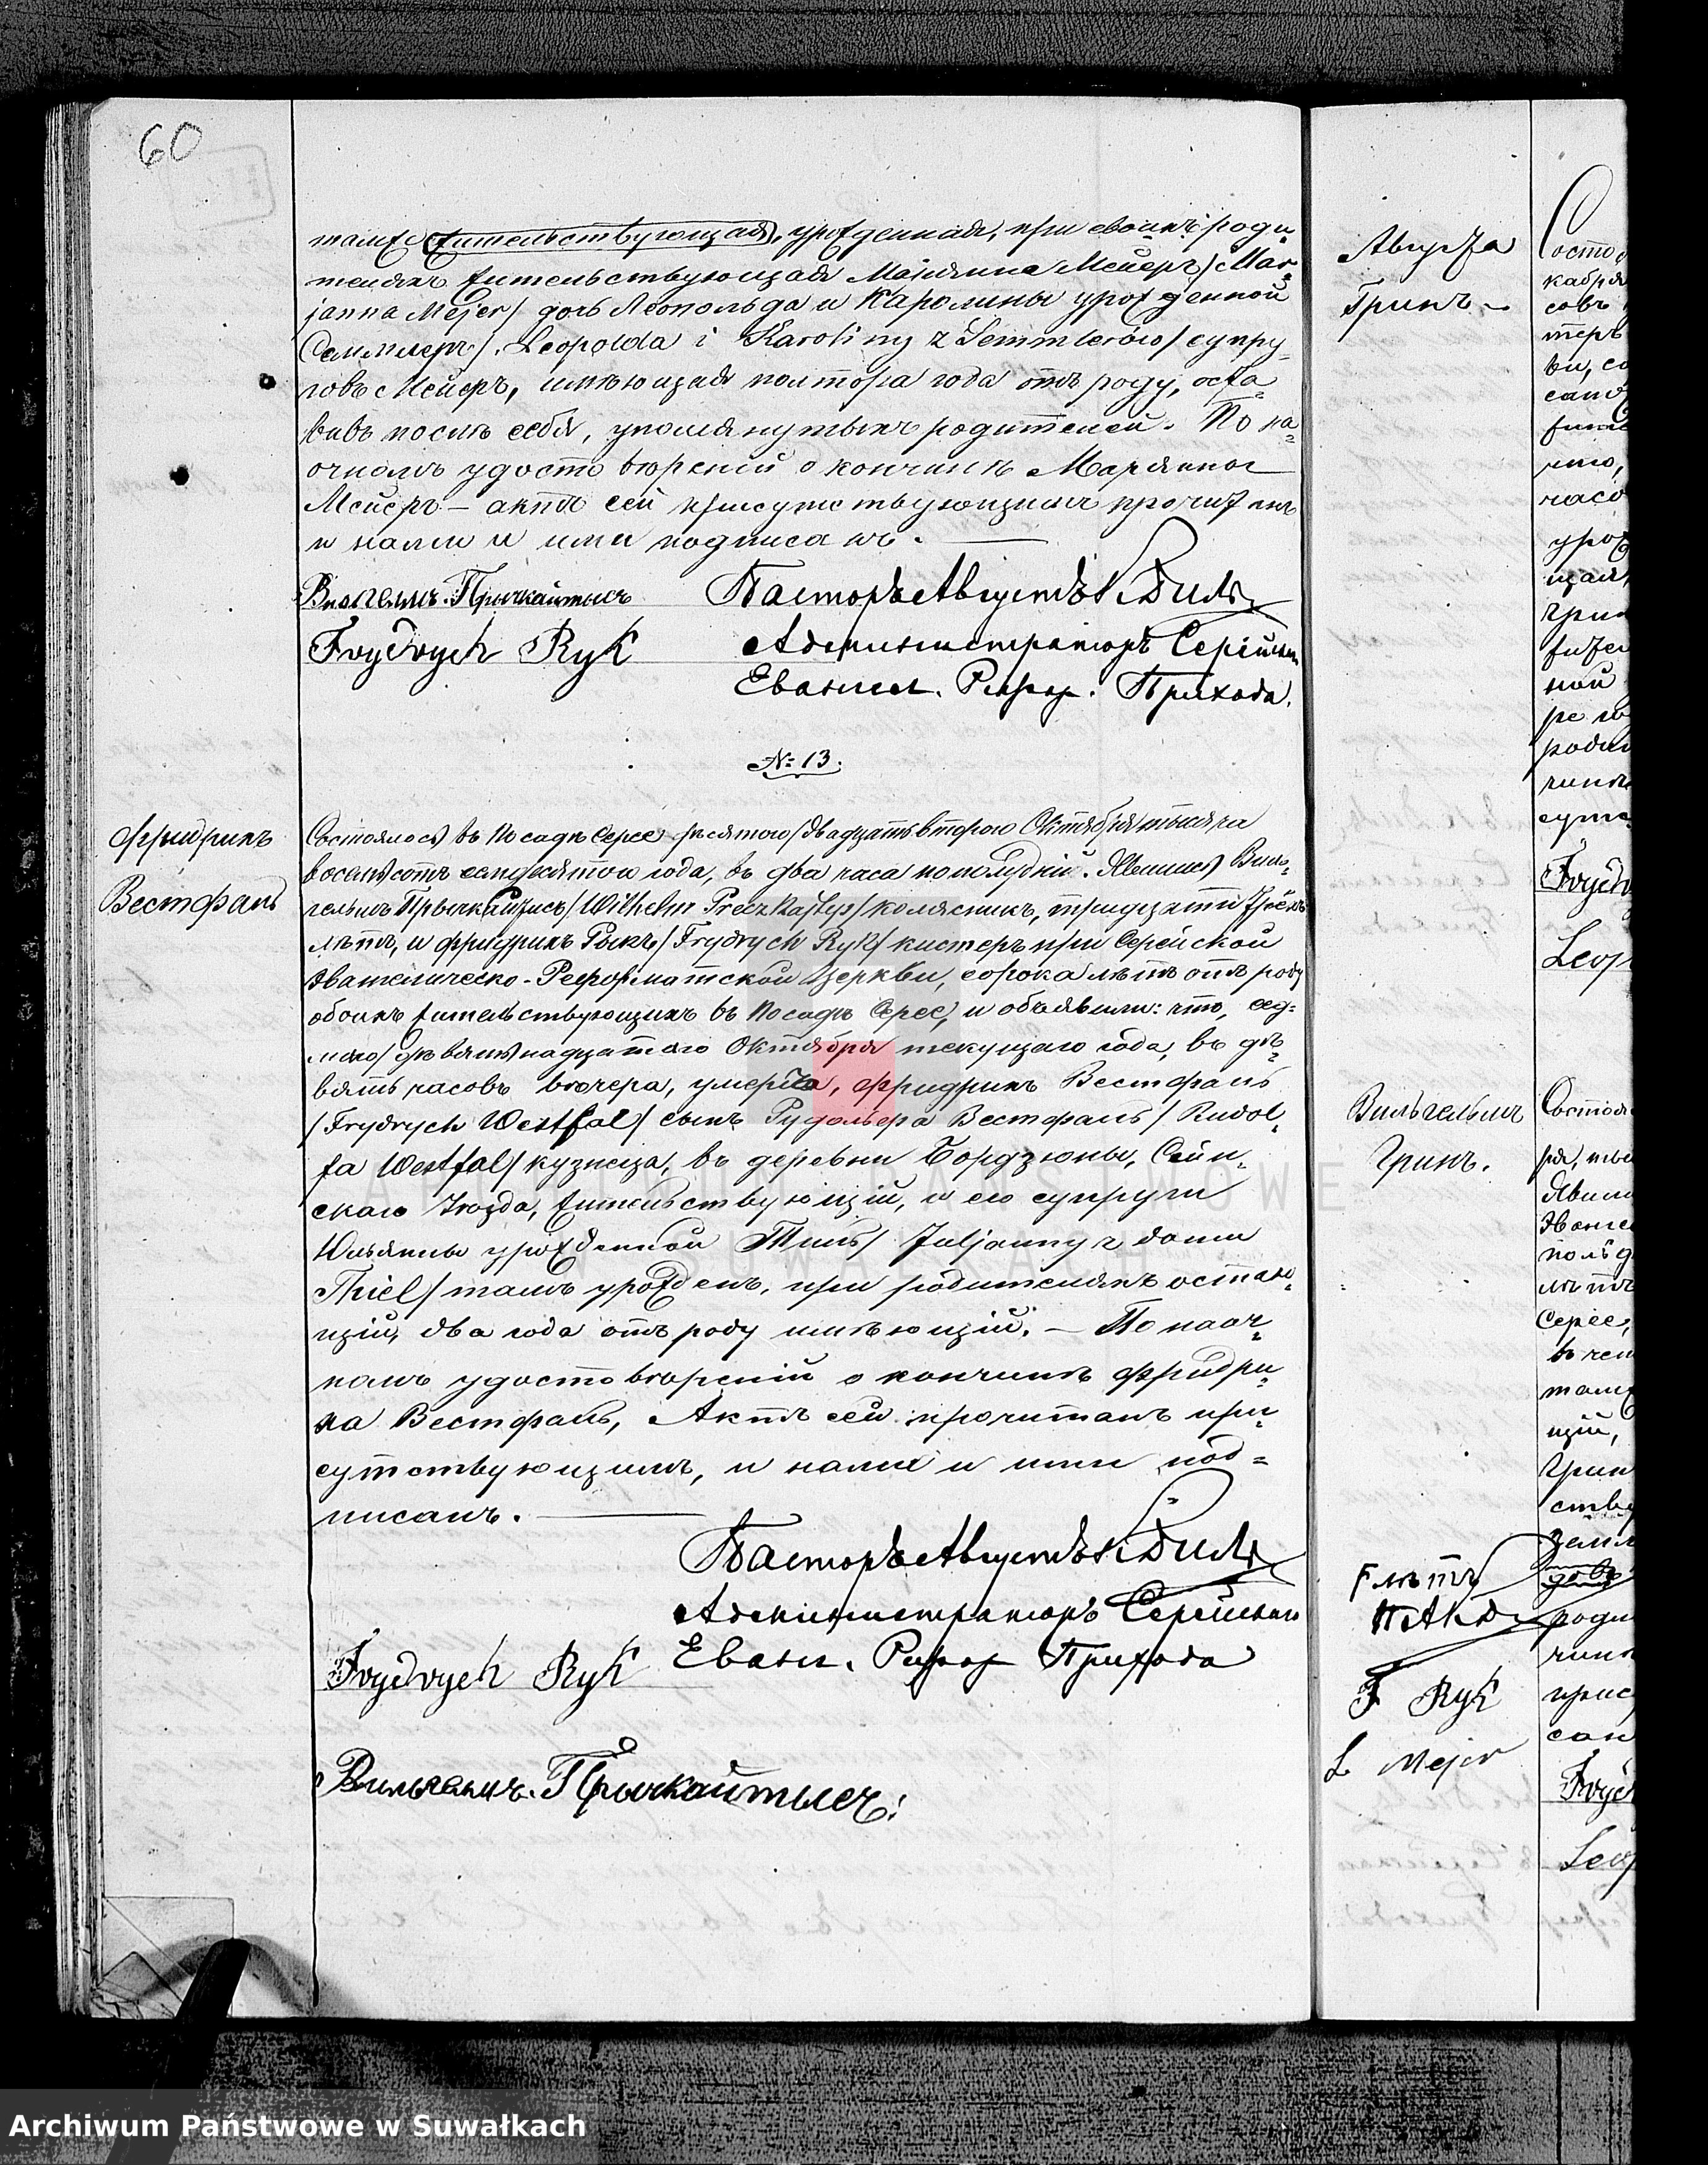 60
тамже жительствующая, урожденная, при своихъ роди-
теляхъ жительствующая Маріянна Мейеръ /Mar-
janna Mejer/ дочь Леопольда и Каролины урожденной
Семмлеръ /Leopolda i Karoliny z Semmlerów/ супру-
говъ Мейеръ, имѣющая полтора года отъ роду, оста-
вивъ послѣ себя, упомянутыхъ родителей. По на-
очномъ удостовѣреніи о кончинѣ Маріянны
Мейеръ — актъ сей присутствующимъ прочитанъ
и нами и ими подписанъ. —
Вильгельмъ Прычкайтысъ
Пасторъ Августъ К. Диль
Frydrych Ryk
Администраторъ Серейскаго
Евангел. Рефор. Прихода.
№ 13.
Фридрихъ
Вестфаль
Состоялось въ Посадѣ Серее десятого /двадцать второго Октября тысяча
восемьсотъ семидесятого года, въ два часа пополудни. Явились Виль-
гельмъ Прычкайтысъ /Wilhelm Preczkajtys/ колясникъ, тридцати трёхъ
лѣтъ, и Фридрихъ Рыкъ /Frydrych Ryk/ кистеръ при Серейской
Эвангелическо-Реформатской Церкви, сорока лѣтъ отъ роду
обоихъ жительствующихъ въ Посадѣ Серее, и объявили: что, сед-
мого /девятнадцатаго Октября текущаго года, въ де-
вять часовъ вечера, умеръ, Фридрихъ Вестфаль
/Frydrych Westfal/ сынъ Рудольфа Вестфаль /Rudol-
fa Westfal/ кузнеца, въ деревни Бордзюны, Сейн-
скаго Уѣзда, жительствующій, и его супруги
Юльянны урожденной Тиль /Juljanny z domu
Thiel/ тамъ урожденъ, при родителяхъ остаю-
щій, два года отъ роду имѣющій. — По наоч-
номъ удостовѣреніи о кончинѣ Фридри-
ха Вестфаль, Актъ сей прочитанъ при-
сутствующимъ, и нами и ими под-
писанъ. —
Пасторъ Августъ К. Диль
Администраторъ Серейскаго
Еванг. Рефор Прихода
Frydrych Ryk
Вильгельмъ Прычкайтысъ
Августа
Гринъ
Состоя
кабря
совъ
теръ
ви, со
сано
жите
что,
часо
урож
щая,
Грин
жител
ной
ре го
роди
чинѣ
сутс
Fryd
Leop
Вильгельмъ
Гринъ.
Состоя
ря, ты
Явили
Эванге
польд
лѣтъ
Серее,
в чет
тамж
щій,
Грин
ству
земл
родит
чинѣ
прис
сан
лѣтъ
ПАКД
F Ryk
L Mejer
Fryd
Leop
Archiwum Państwowe w Suwałkach